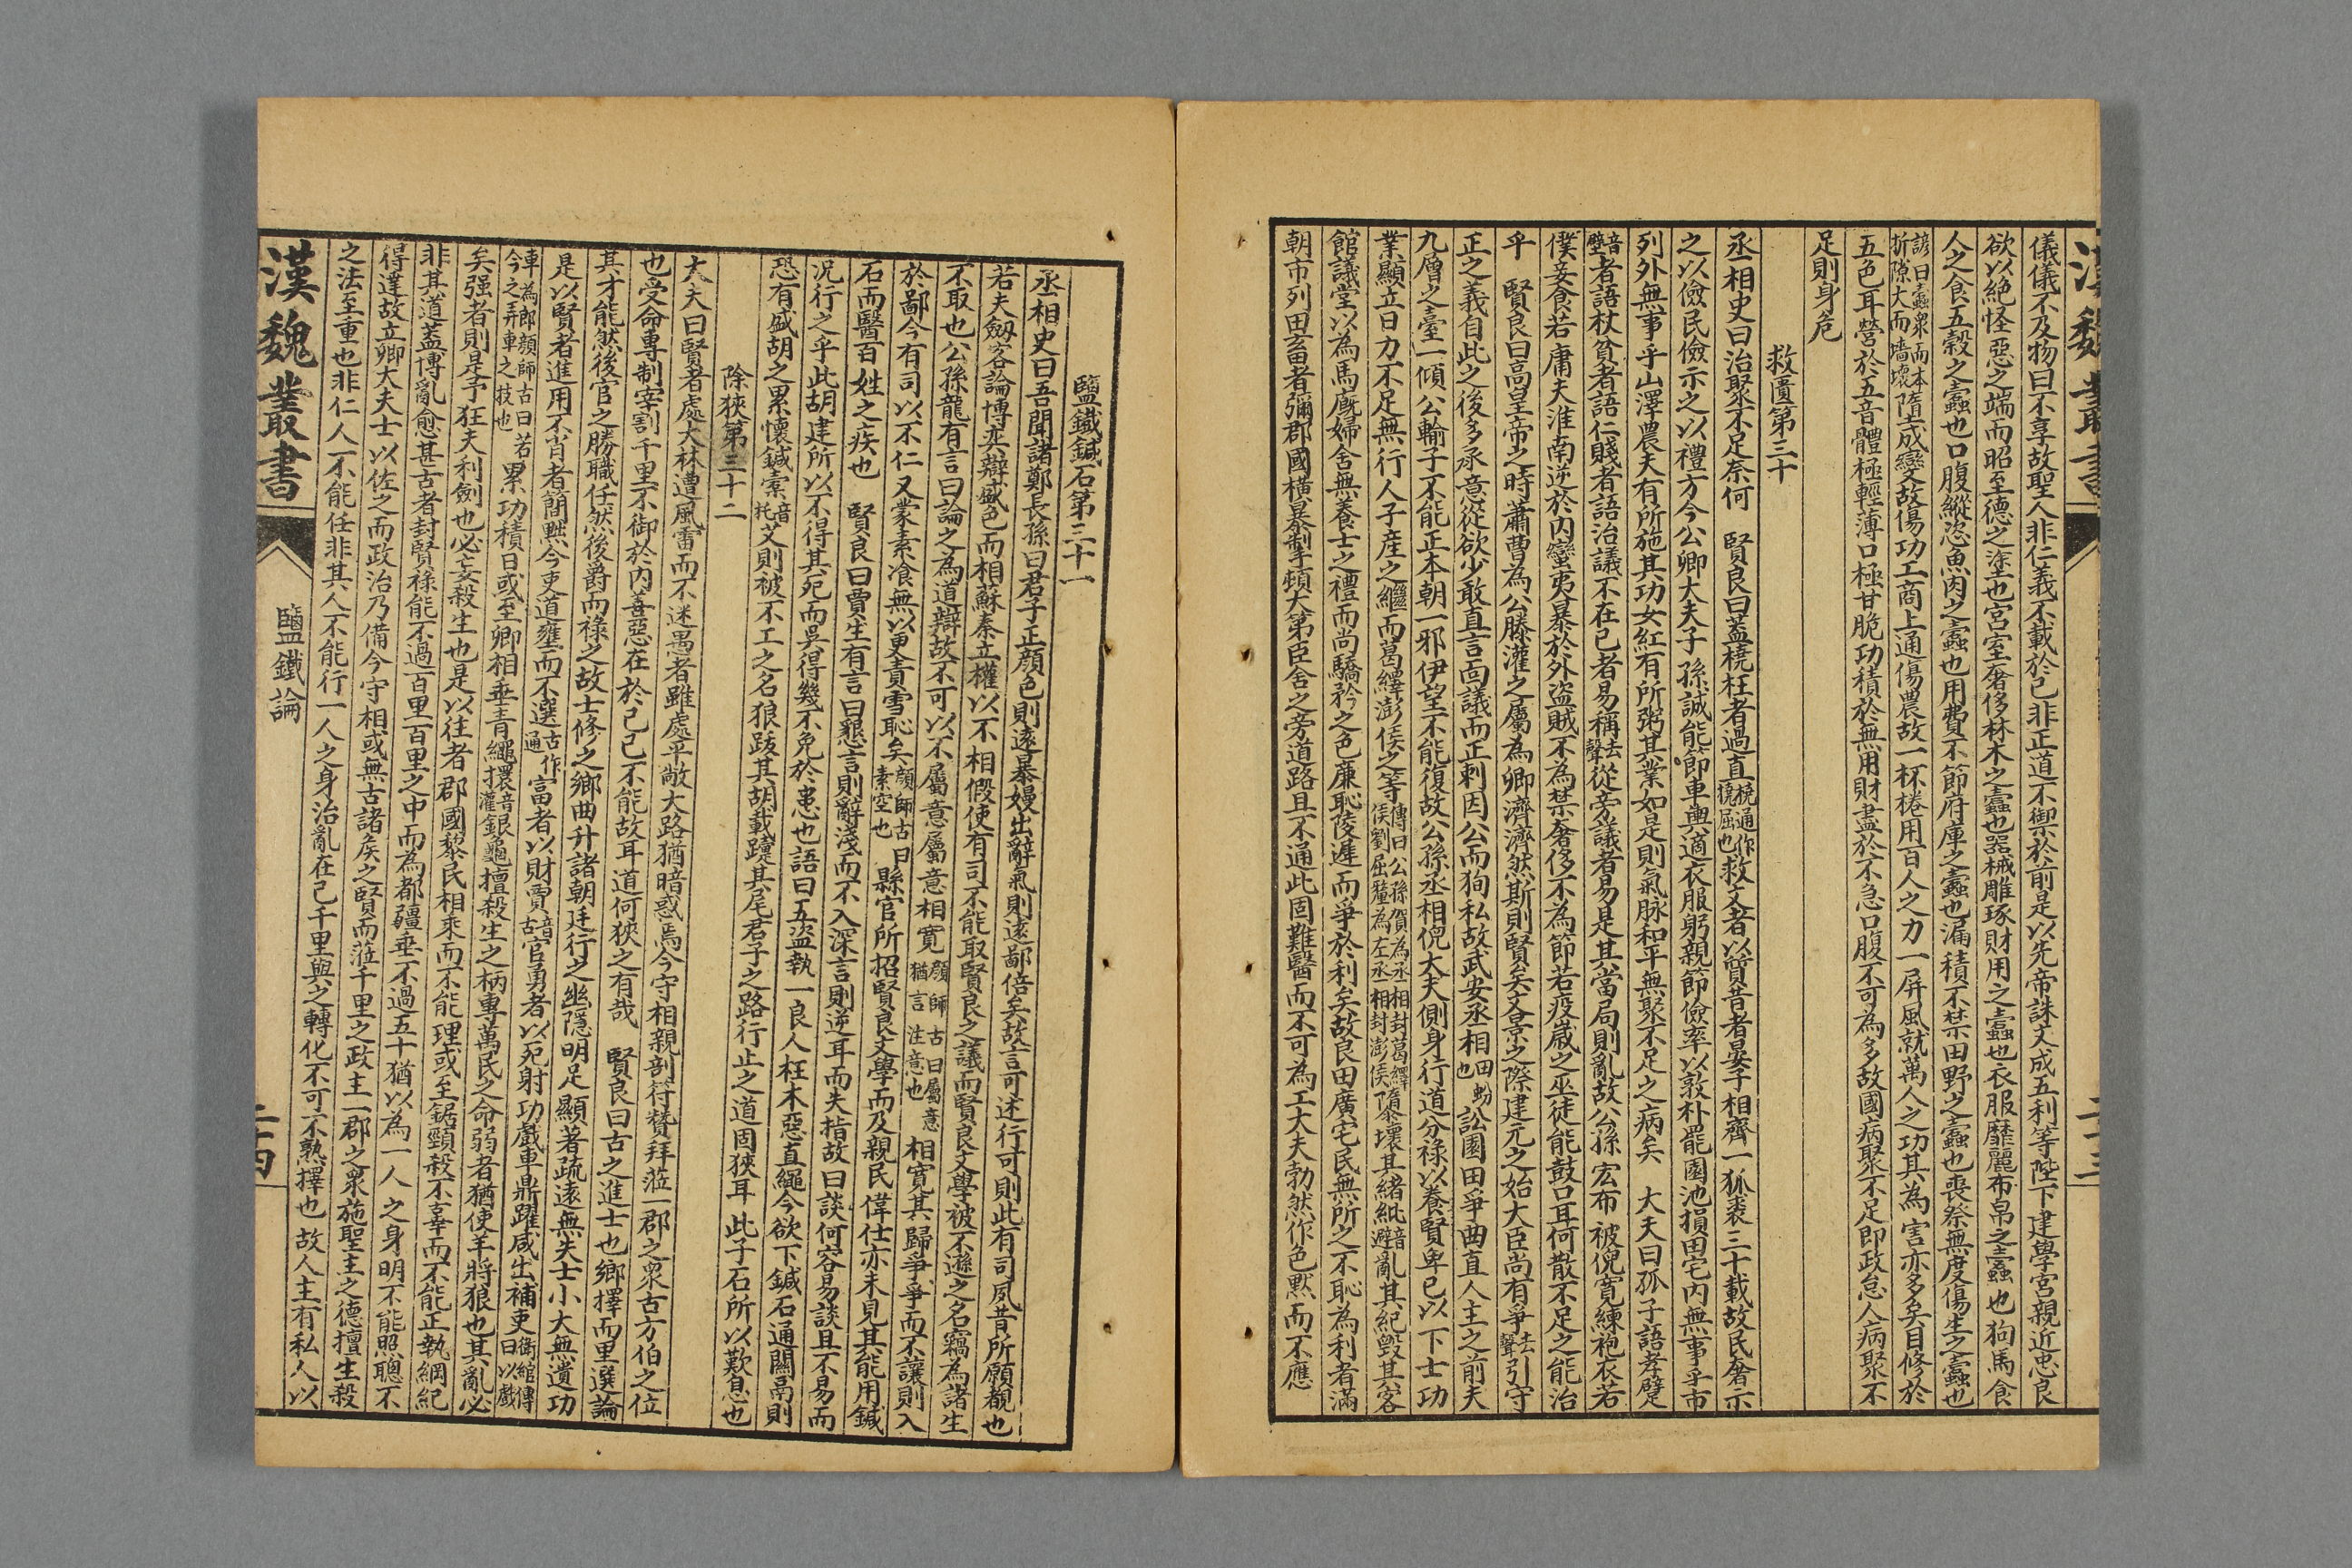 漢魏叢書
儀儀不及物曰不享故聖人非仁義不載於己非正道不御於前是以先帝誅文成五利等陛下建學宮親近忠良
欲以絶怪惡之端而昭至德之塗也宮室奢侈林木之蠹也器械雕琢財用之蠹也衣服靡麗布帛之蠹也狗馬食
人之食五榖之蠹也口腹縱恣魚肉之蠹也用費不節府庫之蠹也漏積不禁田野之蠹也喪祭無度傷生之蠹也
諺曰蠹衆而木折隙大而墻壞墮成變故傷功工商上通傷農故一杯棬用百人之力一屏風就萬人之功其為害亦多矣目修於
五色耳營於五音體極輕薄口極甘脆功積於無用財盡於不急口腹不可為多故國病聚不足即政怠人病聚不
足則身危
救匱第三十
丞相史曰治聚不足奈何　賢良曰蓋橈枉者過直橈通作撓屈也救文者以質昔者晏子相齊一狐裘三十載故民奢示
之以儉民儉示之以禮方今公卿大夫子孫誠能節車輿適衣服躬親節儉率以敦朴罷園池損田宅内無事乎市
列外無事乎山澤農夫有所施其功女紅有所粥其業如是則氣脉和平無聚不足之病矣　大夫曰孤子語孝躄
音壁者語杖貧者語仁賤者語治議不在己者易稱去聲從旁議者易是其當局則亂故公孫宏布被倪寛練袍衣若
僕妾食若庸夫淮南逆於内蠻夷暴於外盜賊不為禁奢侈不為節若疫歲之巫徒能鼓口耳何散不足之能治
乎　賢良曰高皇帝之時蕭曹為公滕灌之屬為卿濟濟然斯則賢矣文景之際建元之始大臣尚有爭去聲引守
正之義自此之後多承意從欲少敢直言面議而正刺因公而狥私故武安丞相田蚡也訟園田爭曲直人主之前夫
九層之臺一傾公輸子不能正本朝一邪伊望不能復故公孫丞相倪大夫側身行道分祿以養賢卑己以下士功
業顯立日力不足無行人子産之繼而葛繹澎侯之等傳曰公孫賀為丞相封葛繹侯劉屈氂為左丞相封澎侯隳壞其緒紕音避亂其紀毁其客
館議堂以為馬廐婦舍無養士之禮而尚驕矜之色廉恥陵遲而爭於利矣故良田廣宅民無所之不恥為利者滿
朝市列田畜者彌郡國横暴掣頓大第臣舍之旁道路且不通此固難醫而不可為工大夫勃然作色默而不應
鹽鐵鍼石第三十一
丞相史曰吾聞諸鄭長孫曰君子正顔色則遠暴嫚出辭氣則遠鄙倍矣故言可述行可則此有司夙昔所願覩也
若夫劒客論博奕辯盛色而相蘇秦立權以不相假使有司不能取賢良之議而賢良文學被不遜之名竊為諸生
不取也公孫龍有言曰論之為道辯故不可以不屬意屬意相寛顔師古曰屬意猶言注意也相寛其歸爭爭而不讓則入
於鄙今有司以不仁又蒙素飡無以更責雪恥矣顔師古曰素空也縣官所招賢良文學而及親民偉仕亦未見其能用鍼
石而醫百姓之疾也　賢良曰賈生有言曰懇言則辭淺而不入深言則逆耳而失指故曰談何容易談且不易而
况行之乎此胡建所以不得其死而吳得幾不免於患也語曰五盜執一良人枉木惡直繩今欲下鍼石通關鬲則
恐有盛胡之累懷鍼橐音托艾則被不工之名狼跋其胡載躓其尾君子之路行止之道固狹耳此子石所以歎息也
除狹第三十二
大夫曰賢者處大林遭風雷而不迷愚者雖處平敞大路猶暗惑焉今守相親剖符贊拜蒞一郡之衆古方伯之位
也受命專制宰割千里不御於内善惡在於己己不能故耳道何狹之有哉　賢良曰古之進士也鄉擇而里選論
其才能然後官之勝職任然後爵而祿之故士修之鄉曲升諸朝廷行之幽隱明足顯著疏遠無失士小大無遺功
是以賢者進用不肖者簡黜今吏道壅而不選古作通富者以財賈音古官勇者以死射功戲車鼎躍咸出補吏衛綰傳曰以戲
車為郎顔師古曰若今之弄車之技也累功積日或至卿相垂青繩擐音灌銀龜擅殺生之柄專萬民之命弱者猶使羊將狼也其亂必
矣强者則是予狂夫利劍也必妄殺生也是以往者郡國黎民相乘而不能理或至鋸頸殺不辜而不能正執綱紀
非其道蓋博亂愈甚古者封賢祿能不過百里百里之中而為都疆垂不過五十猶以為一人之身明不能照聰不
得達故立卿大夫士以佐之而政治乃備今守相或無古諸侯之賢而蒞千里之政主一郡之衆施聖主之德擅生殺
之法至重也非仁人不能任非其人不能行一人之身治亂在己千里與之轉化不可不熟擇也故人主有私人以
漢魏叢書
鹽鐵論